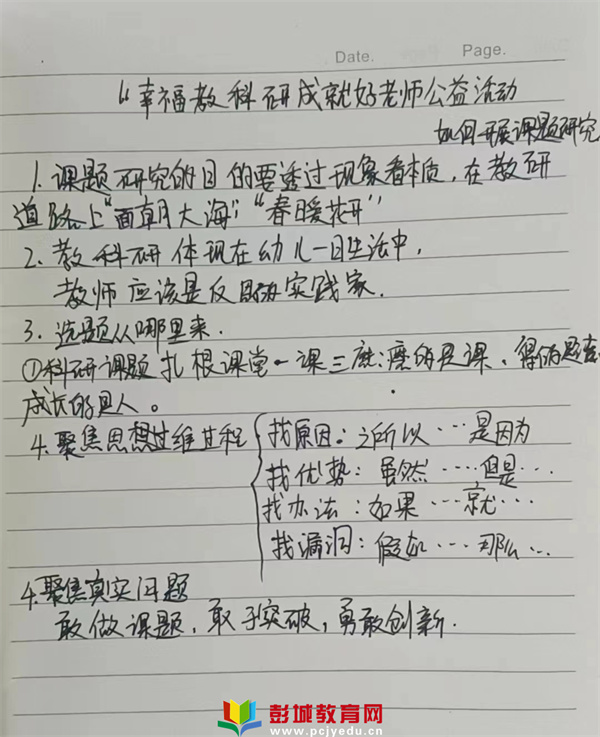 Date. Page.
“幸福教科研成就好老师公益活动
如何开展课题研究
1. 课题研究的目的要透过现象看本质，在教研
道路上“面朝大海”；“春暖花开”
2. 教科研体现在幼儿一日生活中，
教师应该是反思实践家.
3. 选题从哪里来.
①科研课题扎根课堂一课三磨：磨的是课、得的
成长的是人。
4. 聚焦思想过维过程
找原因：之所以…是因为
找优势：虽然…但是…
找办法：如果…就…
找漏洞：假如…那么…
4. 聚焦真实问题
敢做课题，敢于突破，勇敢创新.
彭城教育网
www.pcjyedu.cn